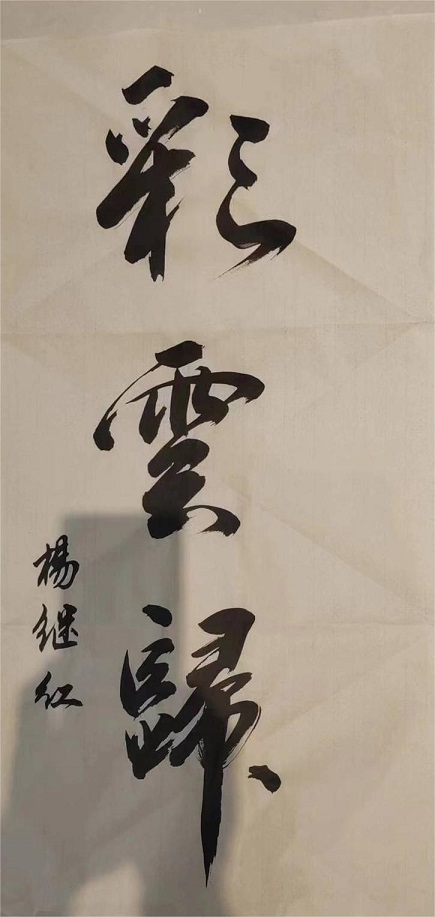 彩雲歸
楊继红